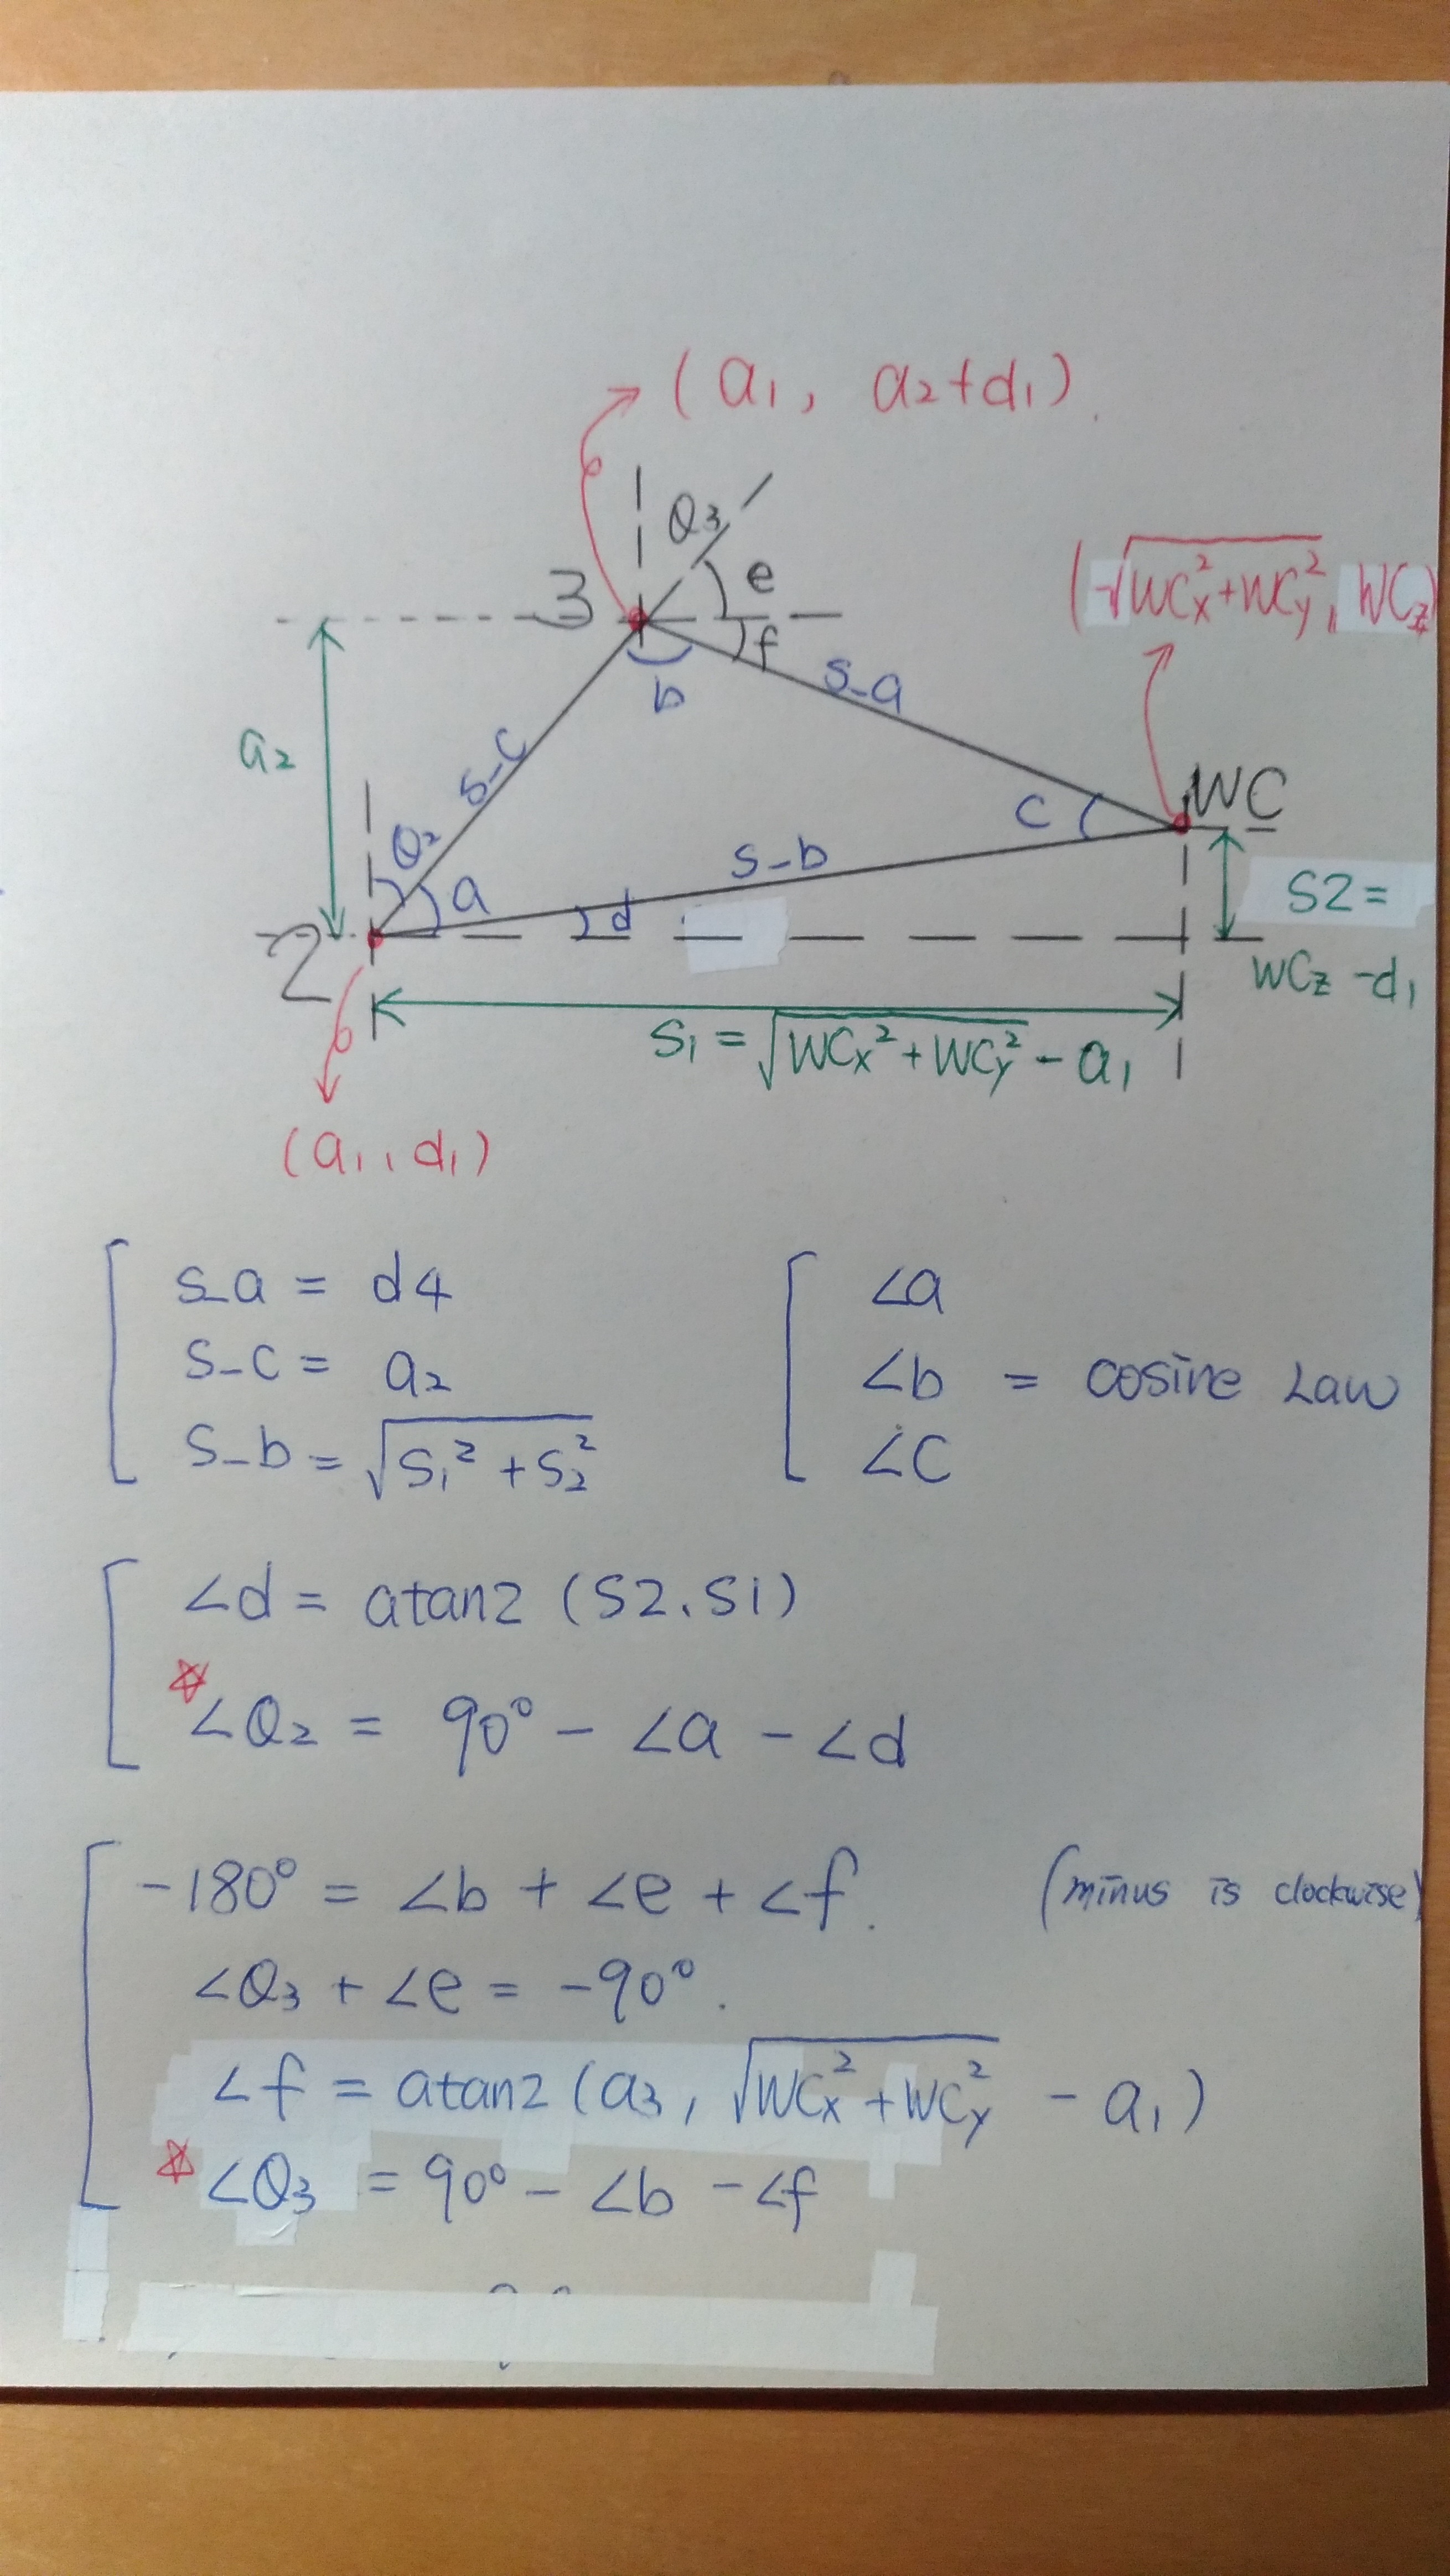 (a₁, a₂+d₁).
Q₃
3
e
f
(√WCx²+WCy², WCz)
b
s-a
a₂
s-c
WC
c
Q₂
s-b
a
S2=
d
2
WCz -d₁
S₁ = √WCx²+WCy² - a₁
(a₁, d₁)
s_a = d4
∠a
s-c = a₂
∠b = cosine Law
s-b = √S₁²+S₂²
∠C
∠d = atan2 (S2, S1)
☆
∠Q₂ = 90° - ∠a - ∠d
-180° = ∠b + ∠e + ∠f. (minus is clockwise)
∠Q₃ + ∠e = -90°.
∠f = atan2 (a₃, √WCx²+WCy² - a₁)
☆ ∠Q₃ = 90° - ∠b - ∠f